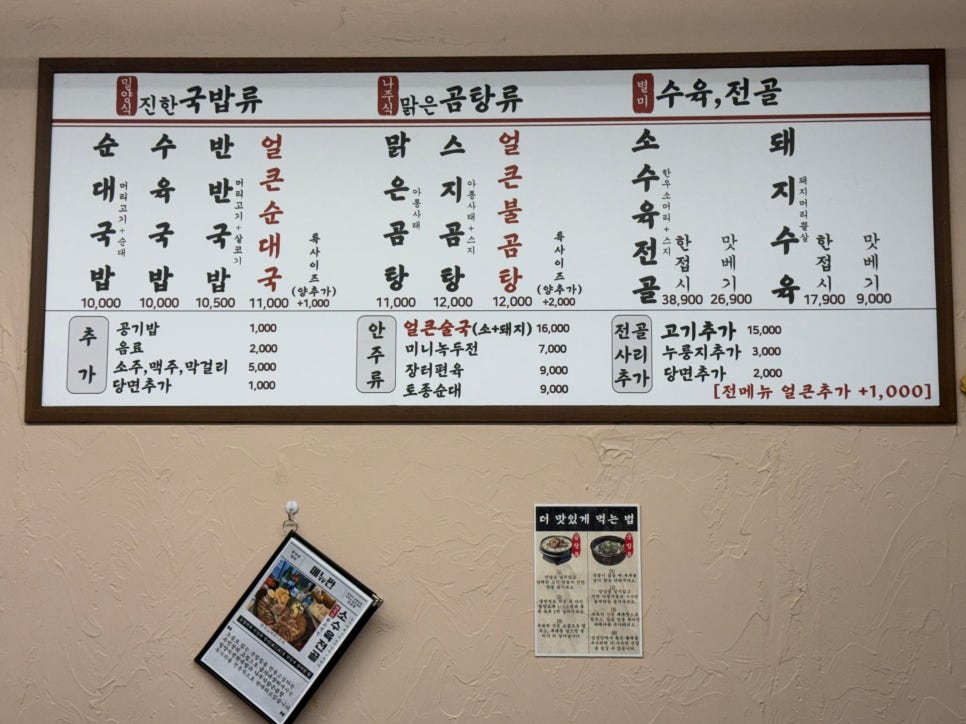 밀양식 진한국밥류
순대국밥 머리고기+순대 10,000
수육국밥 10,000
반반국밥 머리고기+살코기 10,500
얼큰순대국 11,000
특사이즈 (양추가) +1,000
나주식 맑은곰탕류
맑은곰탕 아롱사태 11,000
스지곰탕 아롱사태+스지 12,000
얼큰불곰탕 12,000
특사이즈 (양추가) +2,000
별미 수육,전골
소수육전골 한우소머리+스지
한접시 38,900
맛베기 26,900
돼지수육 돼지머리뽈살
한접시 17,900
맛베기 9,000
추가
공기밥 1,000
음료 2,000
소주,맥주,막걸리 5,000
당면추가 1,000
안주류
얼큰술국(소+돼지) 16,000
미니녹두전 7,000
장터편육 9,000
토종순대 9,000
전골사리추가
고기추가 15,000
누룽지추가 3,000
당면추가 2,000
[전메뉴 얼큰추가 +1,000]
더 맛있게 먹는 법
소수육전골